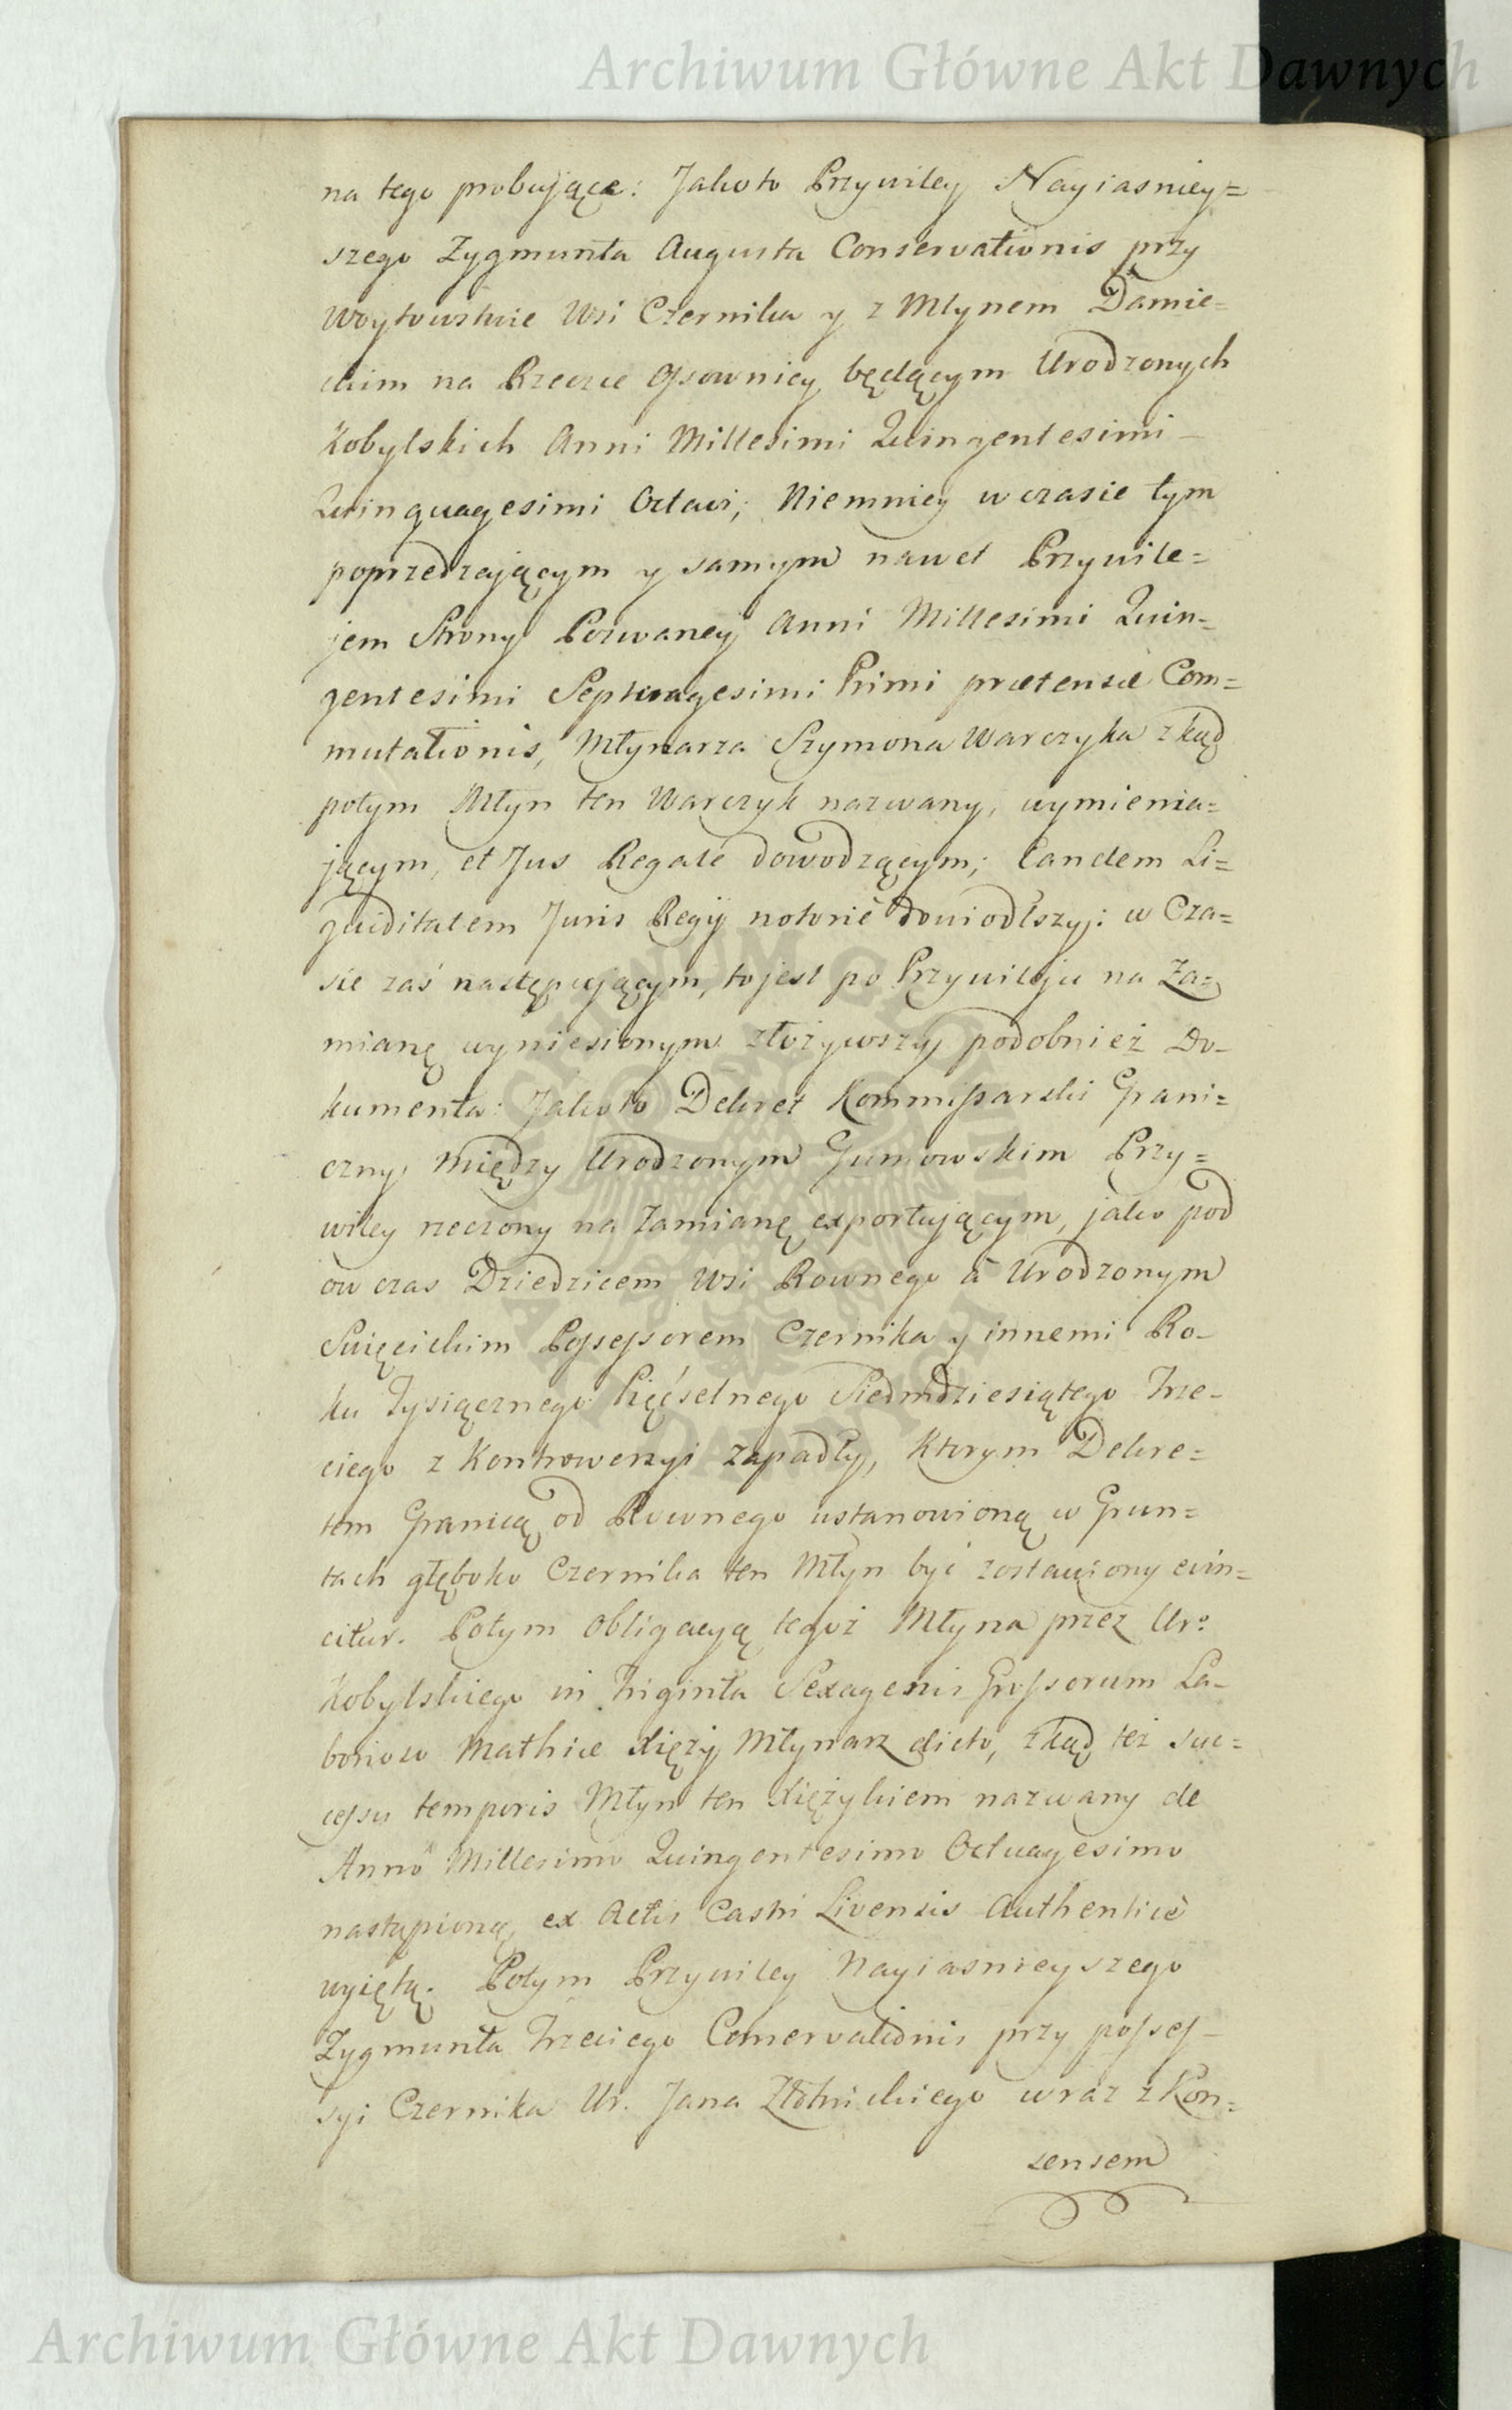 Archiwum Główne Akt Dawnych
na tego probujące: Jakoto Przywiley Nayiasniey=
szego Zygmunta Augusta Conservationis przy
Woytowstwie Wsi Czernika y z Młynem Damie=
ckim na Rzecze Ossownicy będącym Urodzonych
Kobylskich Anni Millesimi Quingentesimi
Quinquagesimi Octavi, Niemniey w czasie tym
poprzedzającym y samym nawet Przywile=
jem Strony Pozwaney Anni Millesimi Quin=
gentesimi Septuagesimi Primi prætensæ Com=
mutationis, Młynarza Szymona Warczyka zkąd
potym Młyn ten Warczyk nazwany, wymienia=
jącym, et Jus Regale dowodzącym; tandem Li=
quiditatem Juris Regij notorie dowiodłszy: w Cza=
sie zaś następującym, to jest po Przywileju na Za=
mianę wyniesionym złożywszy podobnież Do-
kumenta: Jakoto Dekret Kommissarski Grani=
czny między Urodzonym Gumowskim Przy=
wiley rzeczony na Zamianę exportującym, jako pod
ow czas Dziedzicem Wsi Rownego à Urodzonym
Swięcickim Possessorem Czernika y innemi Ro-
ku Tysiącznego Pięćsetnego Siedmdziesiątego Trze-
ciego z Kontrowersyi zapadły, ktorym Dekre=
tem Granicą od Rownego ustanowioną w Grun=
tach głęboko Czernika ten Młyn być zostawiony evin=
citur. Potym Obligacyą tegoż Młyna przez Uro
Kobylskiego in Triginta Sexagenis Grossorum La-
borioso Mathiæ Xięży Młynarz dicto, zkąd też suc=
cessu temporis Młyn ten Xiężykiem nazwany de
Annô Millesimo Quingentesimo Octuagesimo
nastąpioną, ex Actis Castri Livensis Authenticè
wyiętą. Potym Przywiley Nayiasnieyszego
Zygmunta Trzeciego Conservationis przy posses-
syi Czernika Ur. Jana Złotnickiego wraz z Kon=
sensem
Archiwum Główne Akt Dawnych